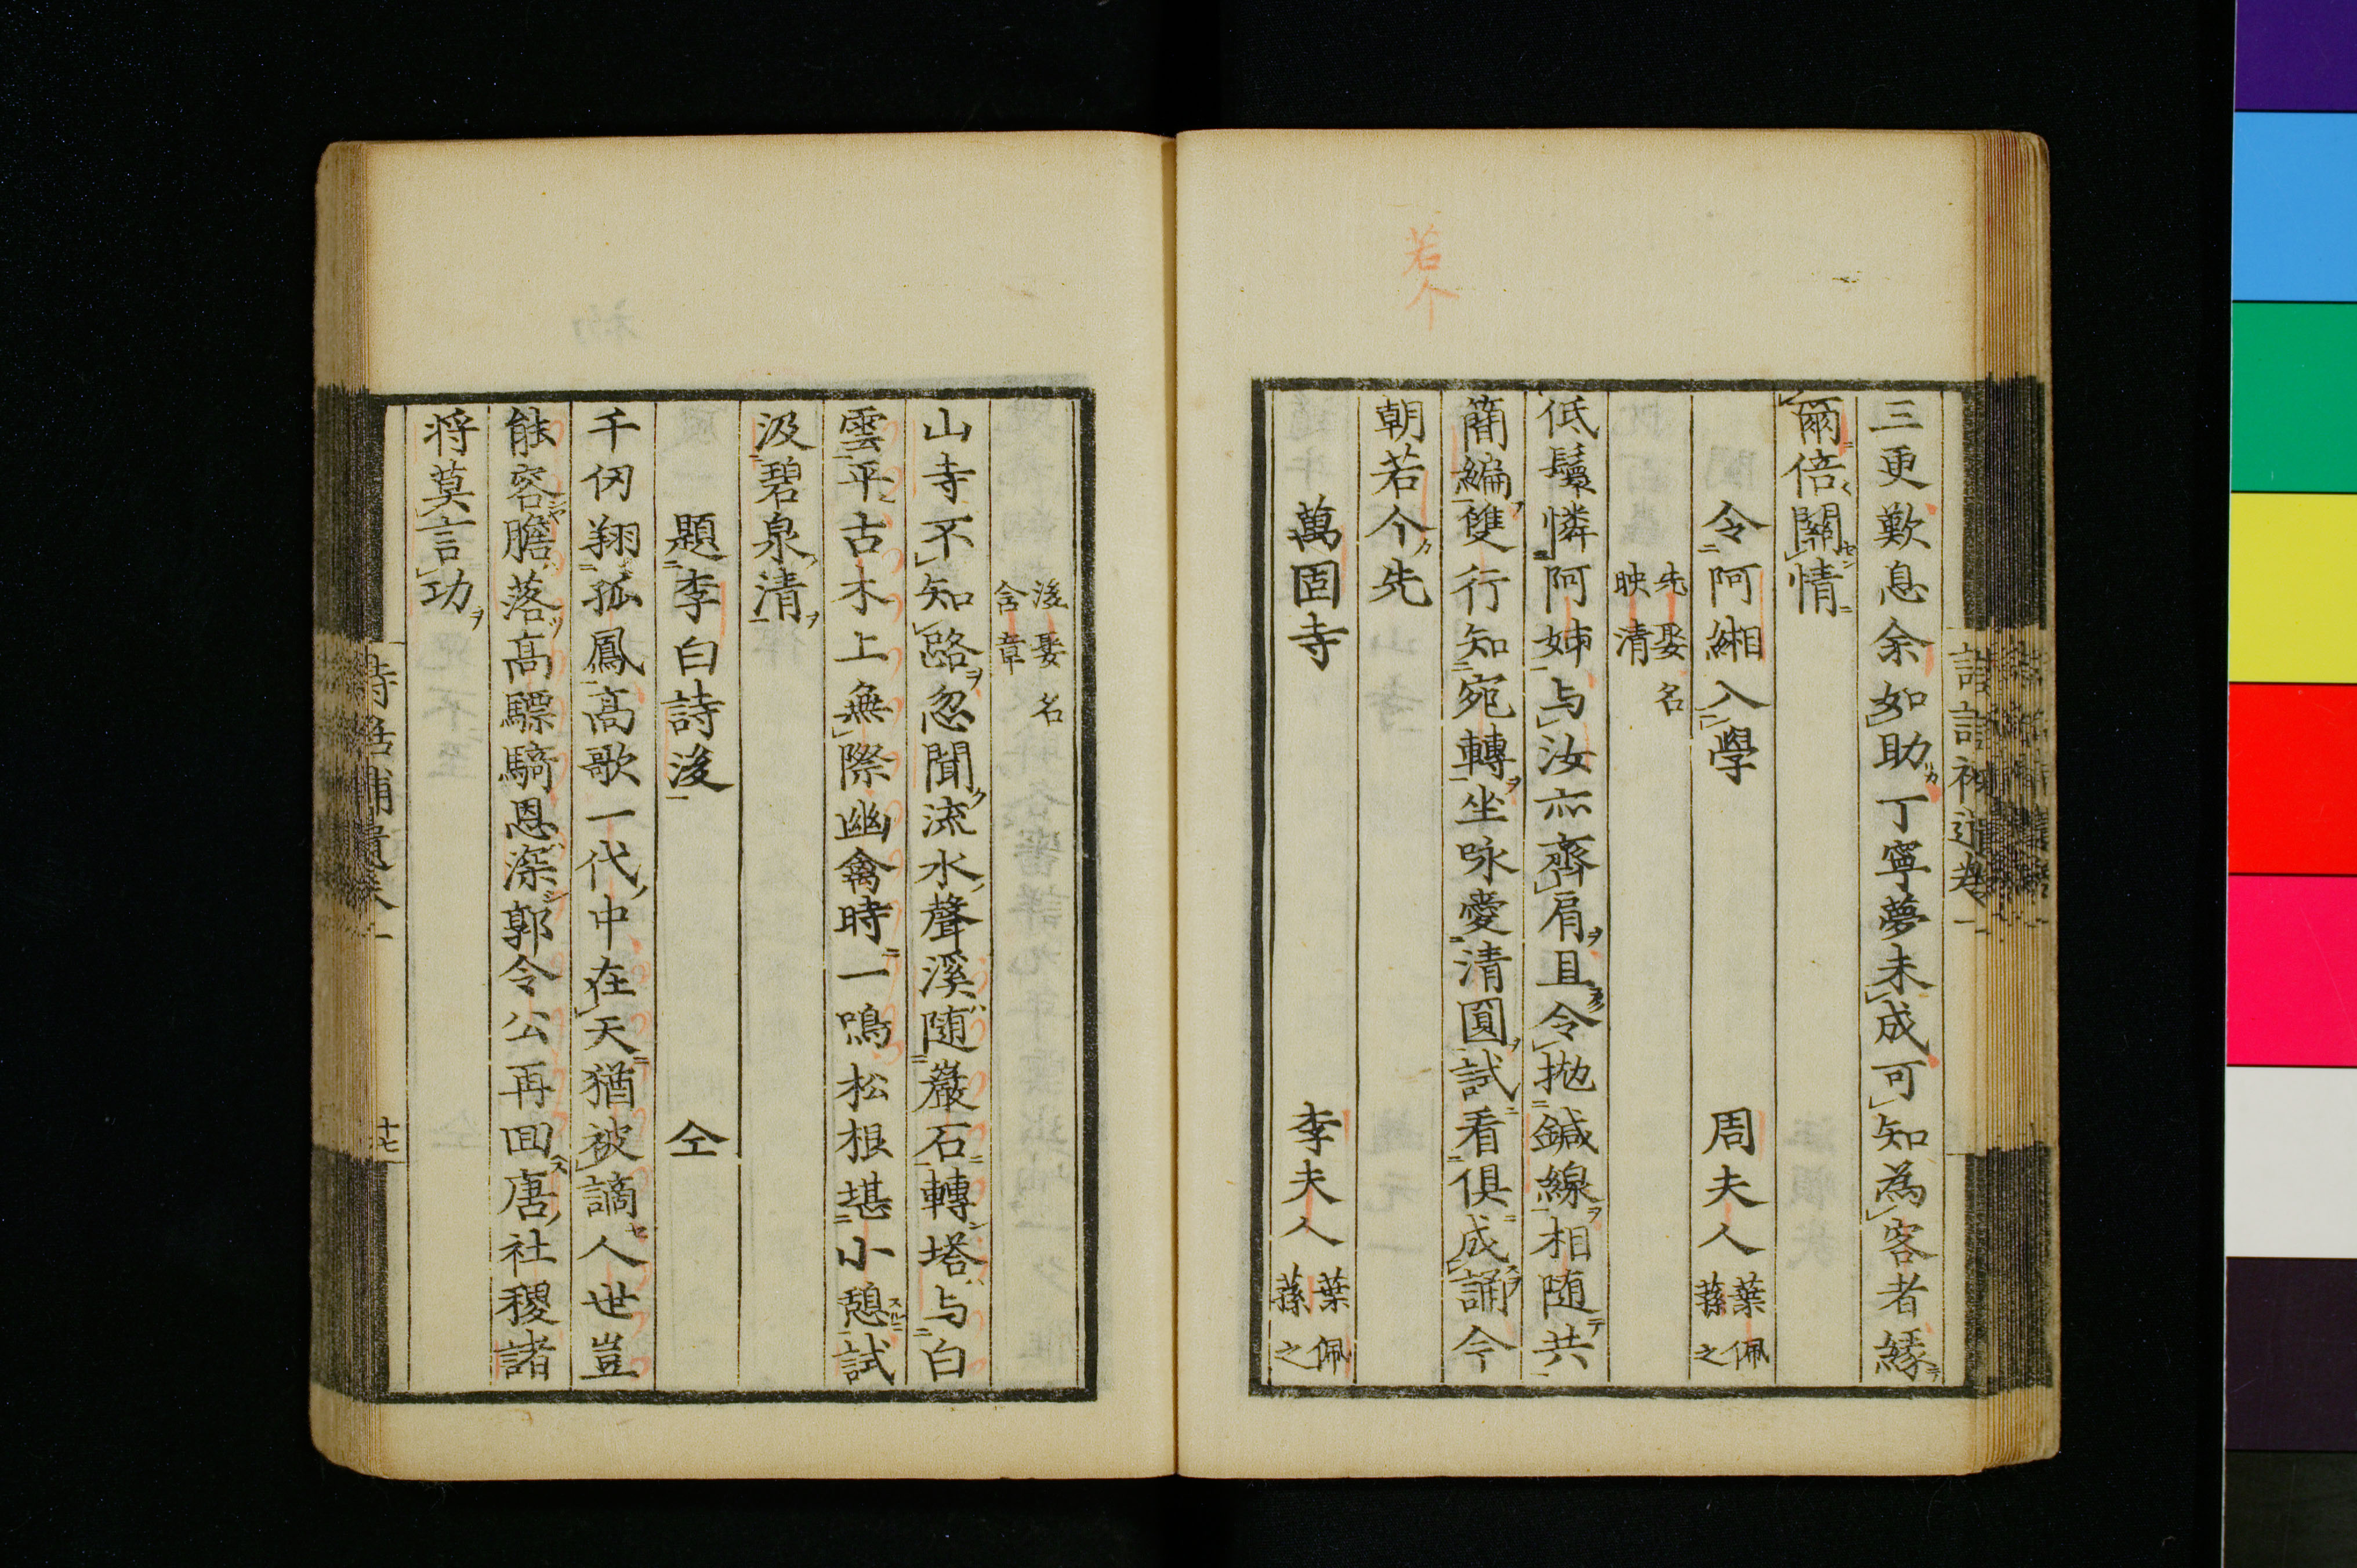 若个
三更歎息余如助丁寧夢未成可知為客者緣
爾倍關情
令阿緗入學　周夫人葉佩蓀之
先娶名
映清
低鬟憐阿姊与汝亦齊肩且令拋鍼線相随共
簡編雙行知宛轉坐咏愛清圓試看俱成誦今
朝若个先
萬固寺　李夫人葉佩蓀之
後娶名
含章
山寺不知路忽聞流水聲溪随巖石轉塔与白
雲平古木上無際幽禽時一鳴松根堪小憩試
汲碧泉清
題李白詩後　仝
千仞翔孤鳳高歌一代中在天猶被謫人世豈
能容膽落高驃騎恩深郭令公再回唐社稷諸
将莫言功
詩話補遺卷一
十七